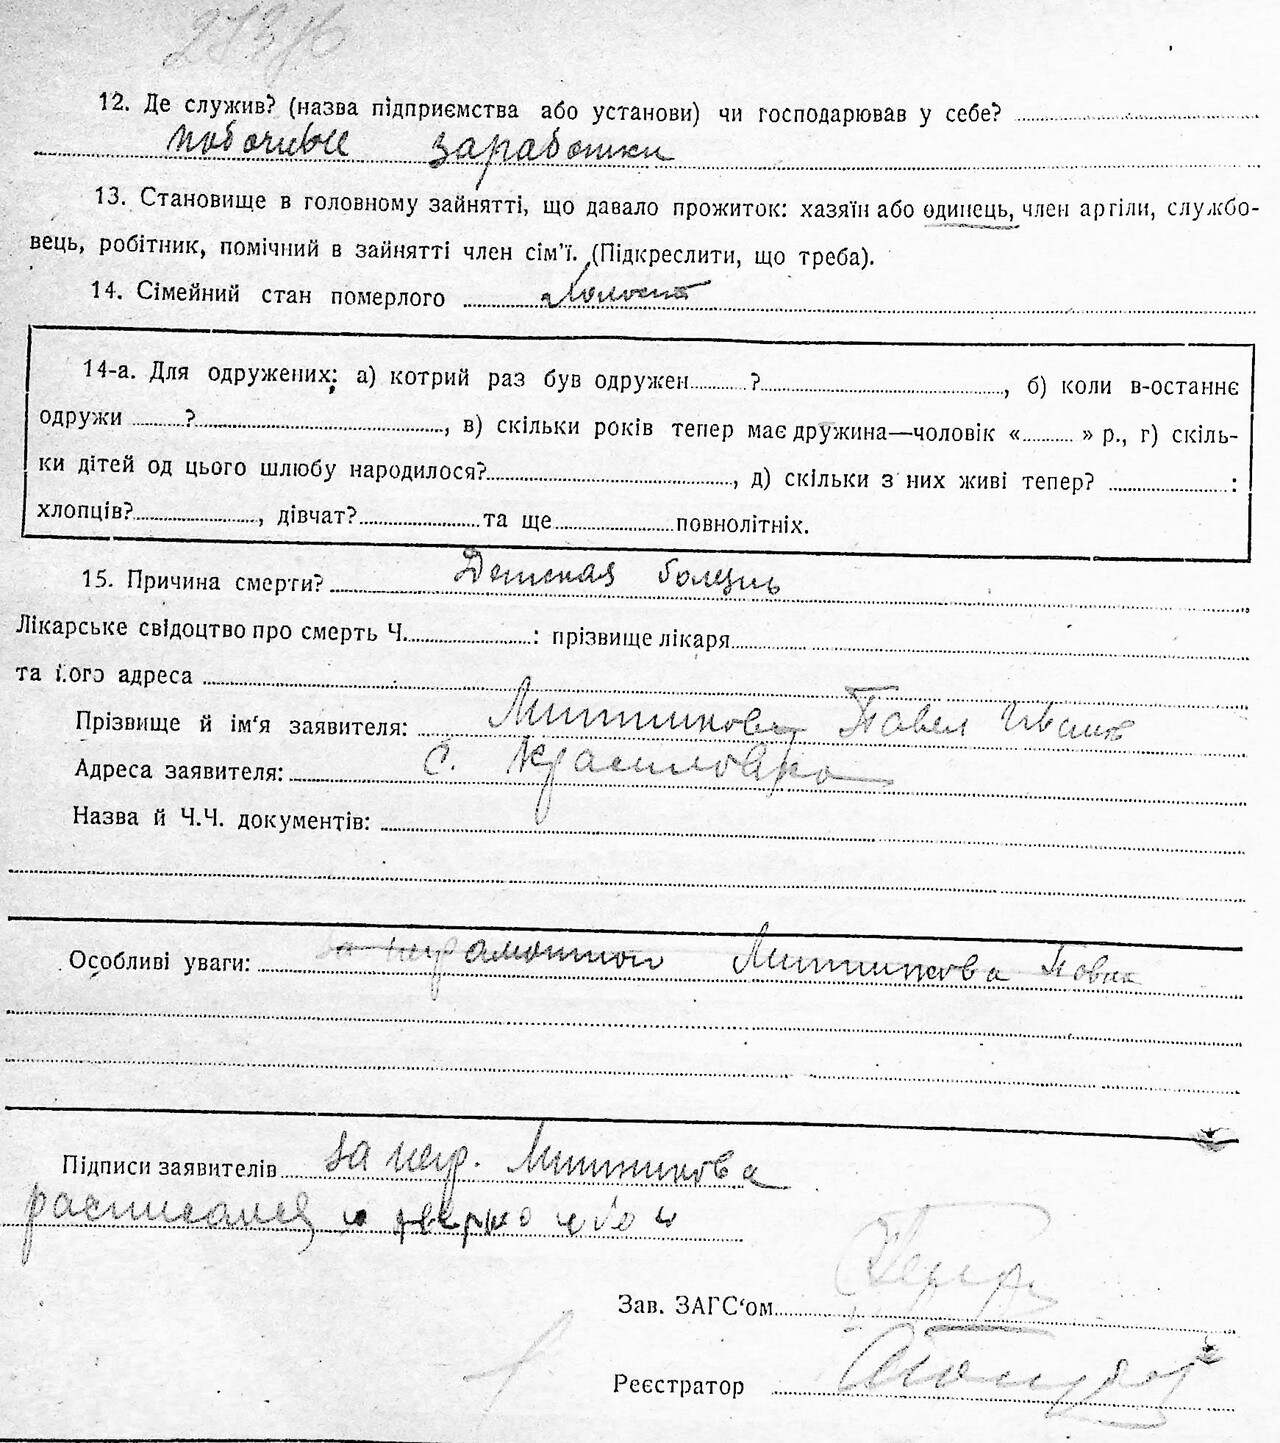 12. Де служив? (назва підприємства або установи) чи господарював у себе?
побочные заработки
13. Становище в головному зайнятті, що давало прожиток: хазяїн або одинець, член артіли, службо-
вець, робітник, помічний в зайнятті член сім'ї. (Підкреслити, що треба).
14. Сімейний стан померлого холост
14-а. Для одружених: а) котрий раз був одружен ? , б) коли в-останнє
одружи ? , в) скільки років тепер має дружина—чоловік « » р., г) скіль-
ки дітей од цього шлюбу народилося? , д) скільки з них живі тепер? :
хлопців? , дівчат? та ще повнолітніх.
15. Причина смерти? Детская болезнь
Лікарське свідоцтво про смерть Ч. : прізвище лікаря
та його адреса
Прізвище й ім'я заявителя: Павел Иванов
Адреса заявителя: с.
Назва й Ч.Ч. документів:
Особливі уваги:
Підписи заявителів за негр.
расписался
Зав. ЗАГС'ом
Реєстратор